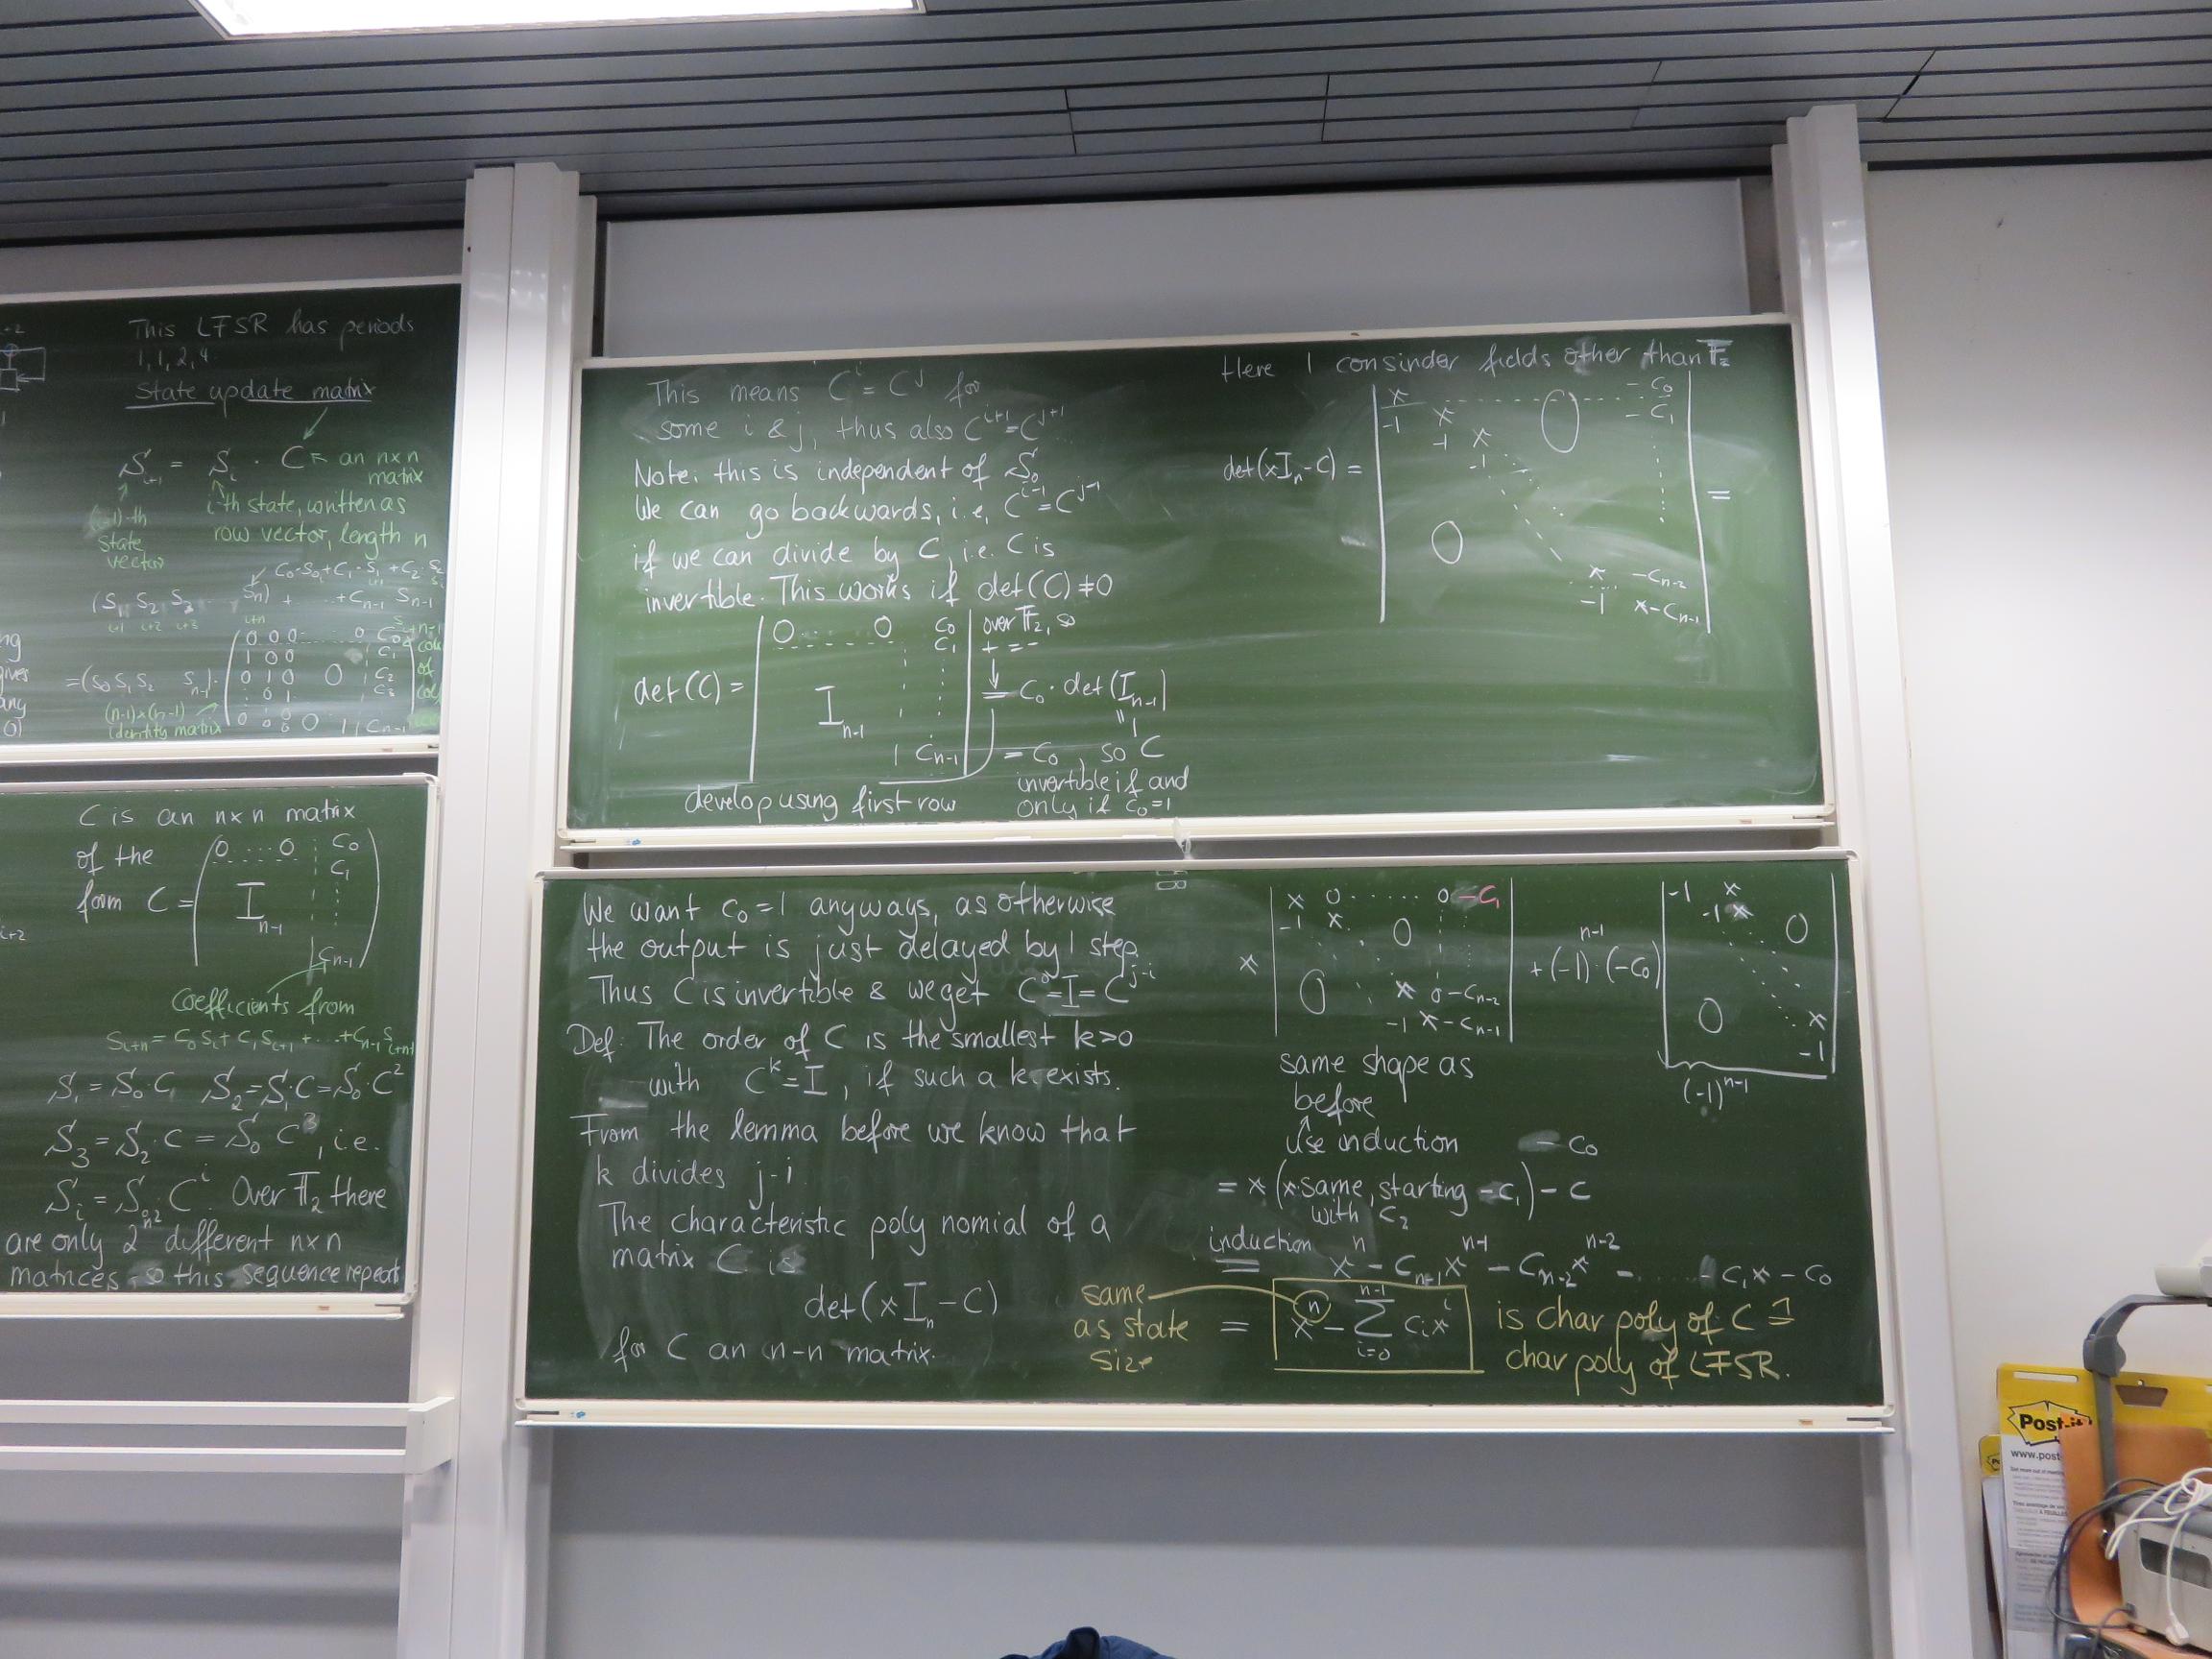 This LFSR has periods
1, 1, 2, 4
State update matrix
S_{i+1} = S_i · C ← an n×n
matrix
i-th state, written as
row vector, length n
state
vector
C_0·S_0+C_1·S_1+C_2·S_2
(S_1 S_2 S_3 S_n) + ..+C_{n-1} S_{n-1}
i+1 i+2 i+3 i+n
0 0 0 ..... 0 C_0
1 0 0 C_1
=(S_0 S_1 S_2 S_{n-1})· 0 1 0 0 C_2
0 1 C_3
0 0 0 0 1 C_{n-1}
(n-1)×(n-1)
identity matrix
C is an n×n matrix
of the 0 ... 0 C_0
C_1
form C = I_{n-1}
C_{n-1}
Coefficients from
S_{i+n} = C_0 S_i + C_1 S_{i+1} + ... + C_{n-1} S_{i+n-1}
S_1 = S_0·C, S_2 = S_1·C = S_0·C^2
S_3 = S_2·C = S_0 C^3, i.e.
S_i = S_0·C^i. Over F_2 there
are only 2^{n^2} different n×n
matrices, so this sequence repeats
This means C^i = C^j for
some i & j, thus also C^{i+1}=C^{j+1}
Note: this is independent of S_0
We can go backwards, i.e, C^{i-1}=C^{j-1}
if we can divide by C, i.e. C is
invertible. This works if det(C) ≠ 0
0 .... 0 C_0 over F_2, so
C_1 + = -
det(C) = I_{n-1} = C_0 · det(I_{n-1})
" 1
1 C_{n-1} = C_0, so C
invertible if and
develop using first row only if C_0=1
Here I consinder fields other than F_2
x - C_0
-1 x 0 - C_1
-1 x
det(xI_n-C) = -1 =
0
x -C_{n-2}
-1 x-C_{n-1}
We want C_0=1 anyways, as otherwise
the output is just delayed by 1 step.
Thus C is invertible & we get C^0=I=C^{j-i}
Def: The order of C is the smallest k>0
with C^k=I, if such a k exists.
From the lemma before we know that
k divides j-i.
The characteristic poly nomial of a
matrix C is
det(xI_n-C)
for C an n-n matrix.
x 0 ...... 0 -C_1
-1 x 0
x
0 x 0 -C_{n-2}
-1 x-C_{n-1}
+(-1)^{n-1}·(-C_0)
-1 x
-1 x 0
0 x
-1
(-1)^{n-1}
same shape as
before
use induction - C_0
= x(x·same, starting -C_1) - C
with C_2
induction
= x^n - C_{n-1}x^{n-1} - C_{n-2}x^{n-2} - ...... - C_1x - C_0
same
as state
size
= x^n - Σ_{i=0}^{n-1} C_i x^i
is char poly of C =
char poly of LFSR.
Post-it
www.post-